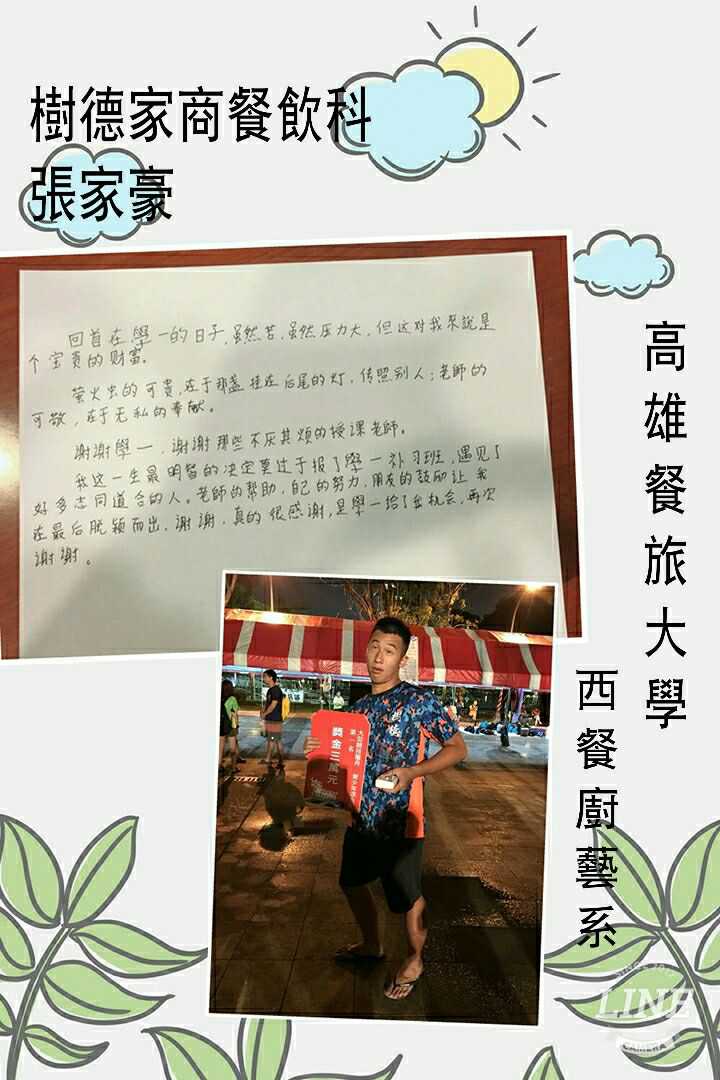 樹德家商餐飲科
張家豪
回首在學一的日子，虽然苦，虽然压力大，但这对我来說是
个宝貴的财富。
萤火虫的可貴，在于那盏挂在后尾的灯，传照别人；老師的
可敬，在于无私的奉献。
謝謝學一，謝謝那些不厌其烦的授课老師。
我这一生最明智的决定莫过于报了學一补习班，遇见了
好多志同道合的人。老師的帮助，自己的努力，朋友的鼓励让我
在最后脱颖而出，謝謝，真的很感谢，是學一给了我机会，再次
謝謝。
高雄餐旅大學
西餐廚藝系
第一名
獎金三萬元
LINE